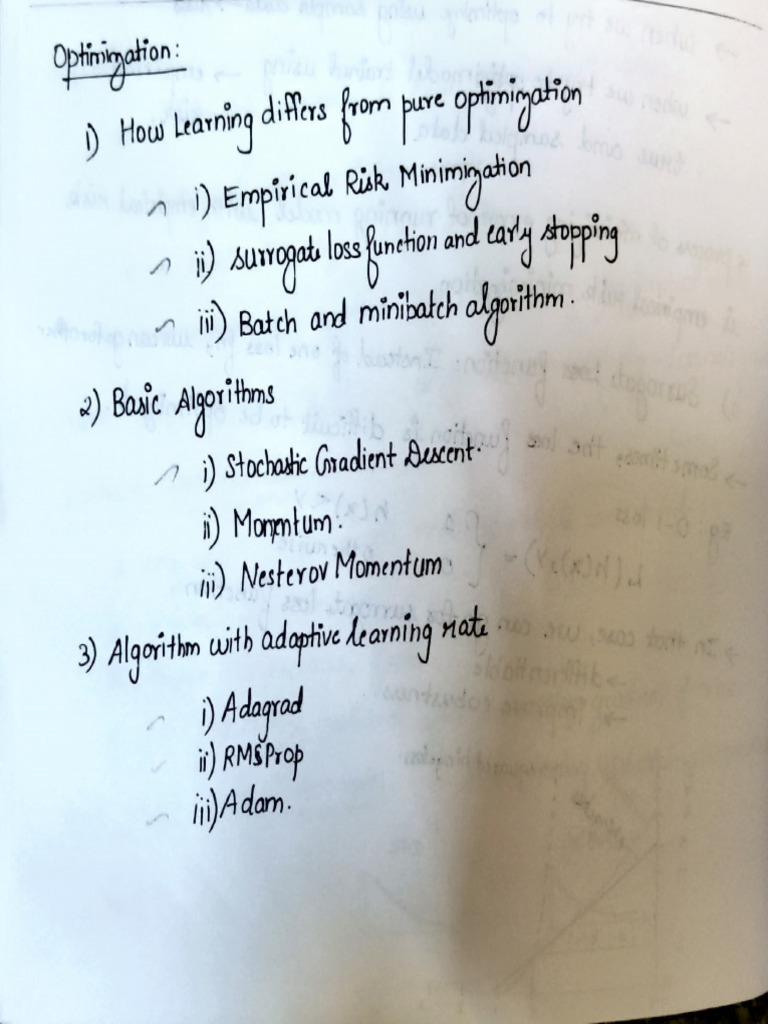 Optimization:
1) How Learning differs from pure optimization
i) Empirical Risk Minimization
ii) surrogate loss function and early stopping
iii) Batch and minibatch algorithm.
2) Basic Algorithms
i) Stochastic Gradient Descent.
ii) Momentum.
iii) Nesterov Momentum.
3) Algorithm with adaptive learning rate.
i) Adagrad
ii) RMSProp
iii) Adam.